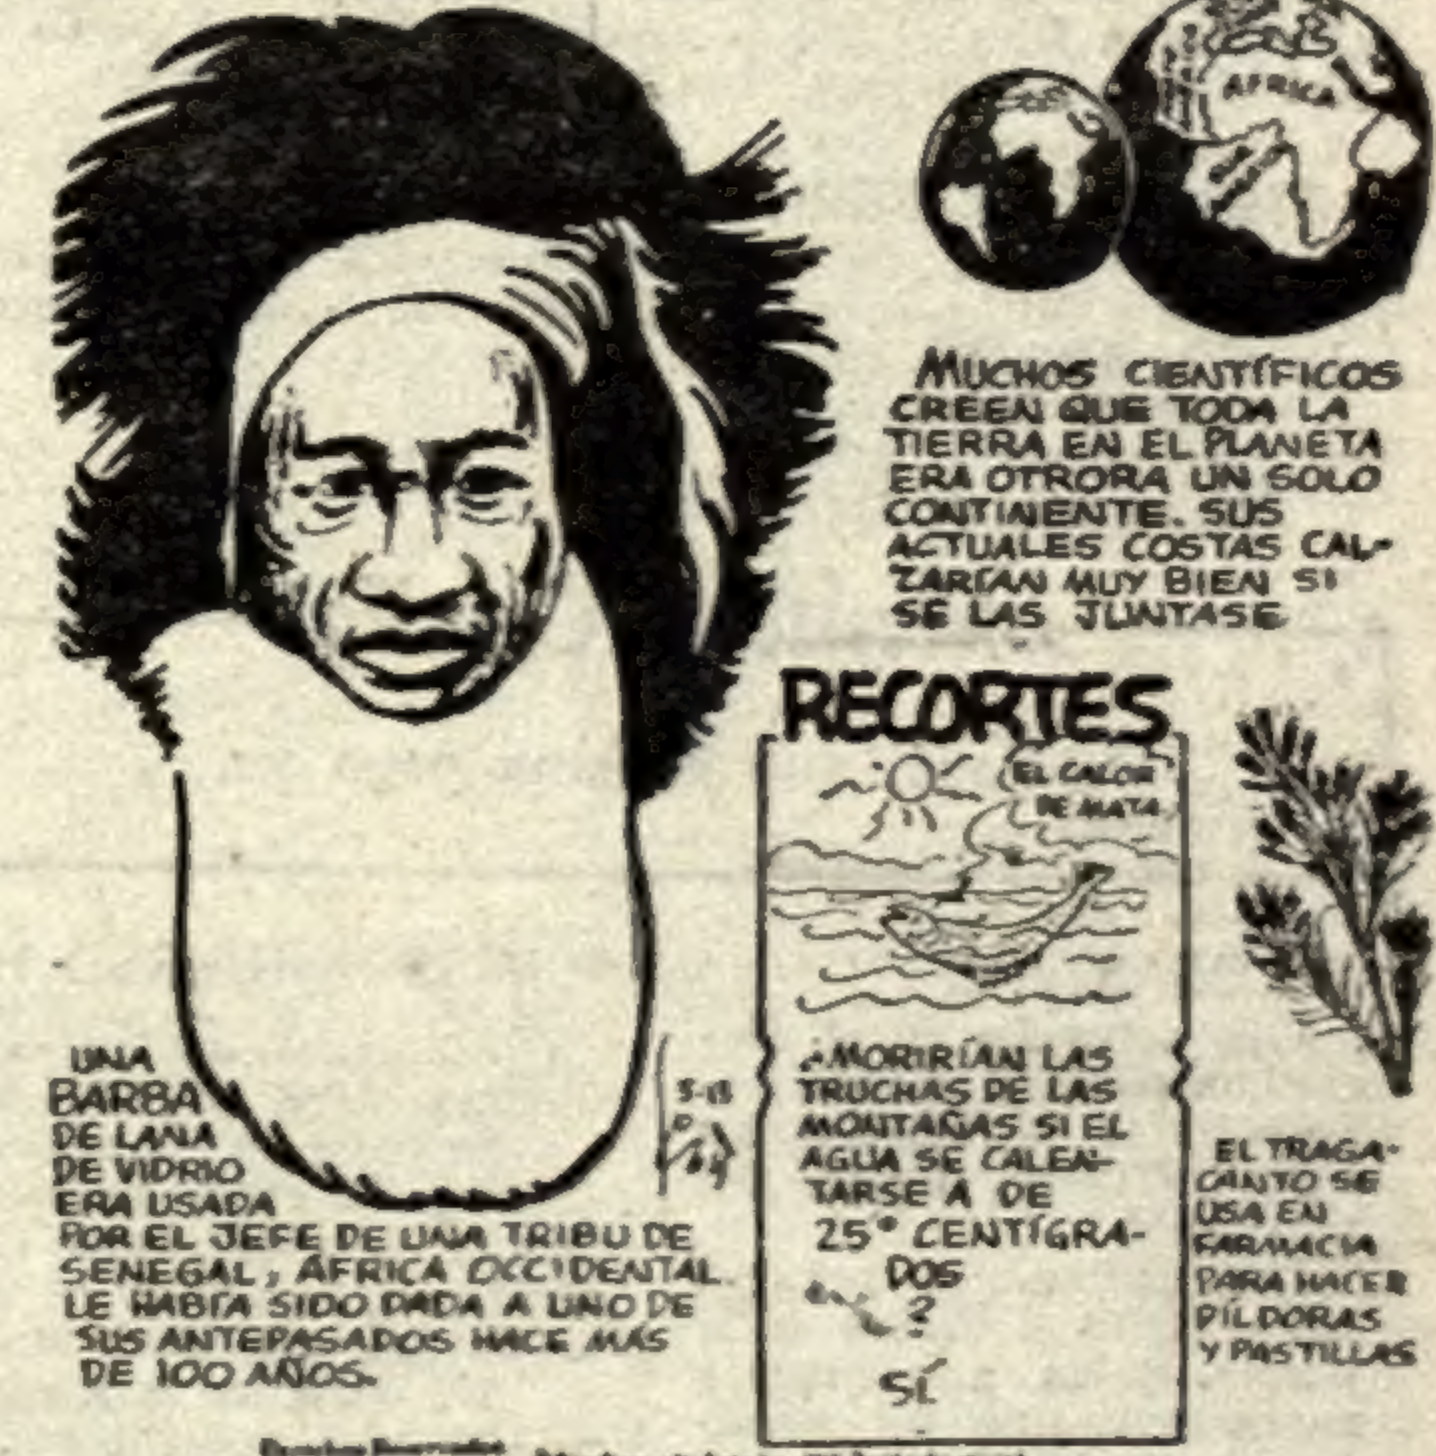 AFRICA
MUCHOS CIENTÍFICOS
CREEN QUE TODA LA
TIERRA EN EL PLANETA
ERA OTRORA UN SOLO
CONTINENTE. SUS
ACTUALES COSTAS CAL-
ZARÍAN MUY BIEN SI
SE LAS JUNTASE
RECORTES
EL CALOR
ME MATA
¿MORIRÍAN LAS
TRUCHAS DE LAS
MONTAÑAS SI EL
AGUA SE CALEN-
TARSE A DE
25° CENTÍGRA-
DOS
?
SÍ
EL TRAGA-
CANTO SE
USA EN
FARMACIA
PARA HACER
PÍLDORAS
Y PASTILLAS
UNA
BARBA
DE LANA
DE VIDRIO
ERA USADA
POR EL JEFE DE UNA TRIBU DE
SENEGAL, ÁFRICA OCCIDENTAL.
LE HABÍA SIDO DADA A UNO DE
SUS ANTEPASADOS HACE MÁS
DE 100 AÑOS.
5-13
Derechos Reservados